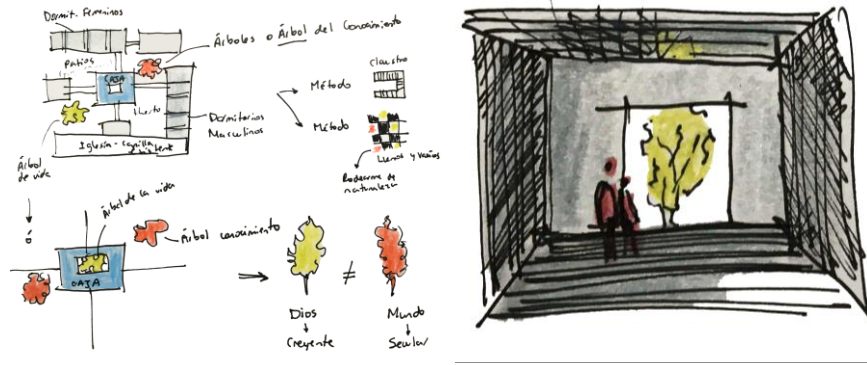 Dormit. Femeninos
Árboles o Árbol del Conocimiento
Patios
CAJA
Huerto
Dormitorios
Masculinos
Iglesia - Capilla
Existente
Árbol
de vida
ó
Método
Claustro
Método
Llenos y vacíos
Rodearme de
naturaleza
Árbol de la vida
Árbol conocimiento
CAJA
≠
Dios
Mundo
Creyente
Secular